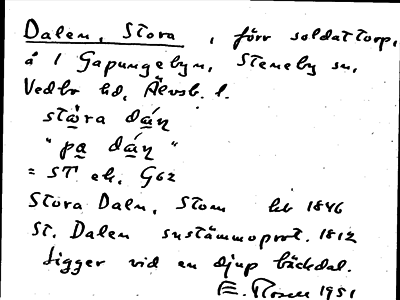 Dalen, Stora, förr soldattorp,
å 1 Gapungebyn, Steneby sn,
Vedbo hd, Älvsb. l.
stɑ̊ra dáɳ
"pa dáɳ"
= ST ek. G62
Stora Daln, Stom hb 1846
St. Dalen sustämmoprot. 1812
Ligger vid en djup bäckdal.
E. Rosell 1951